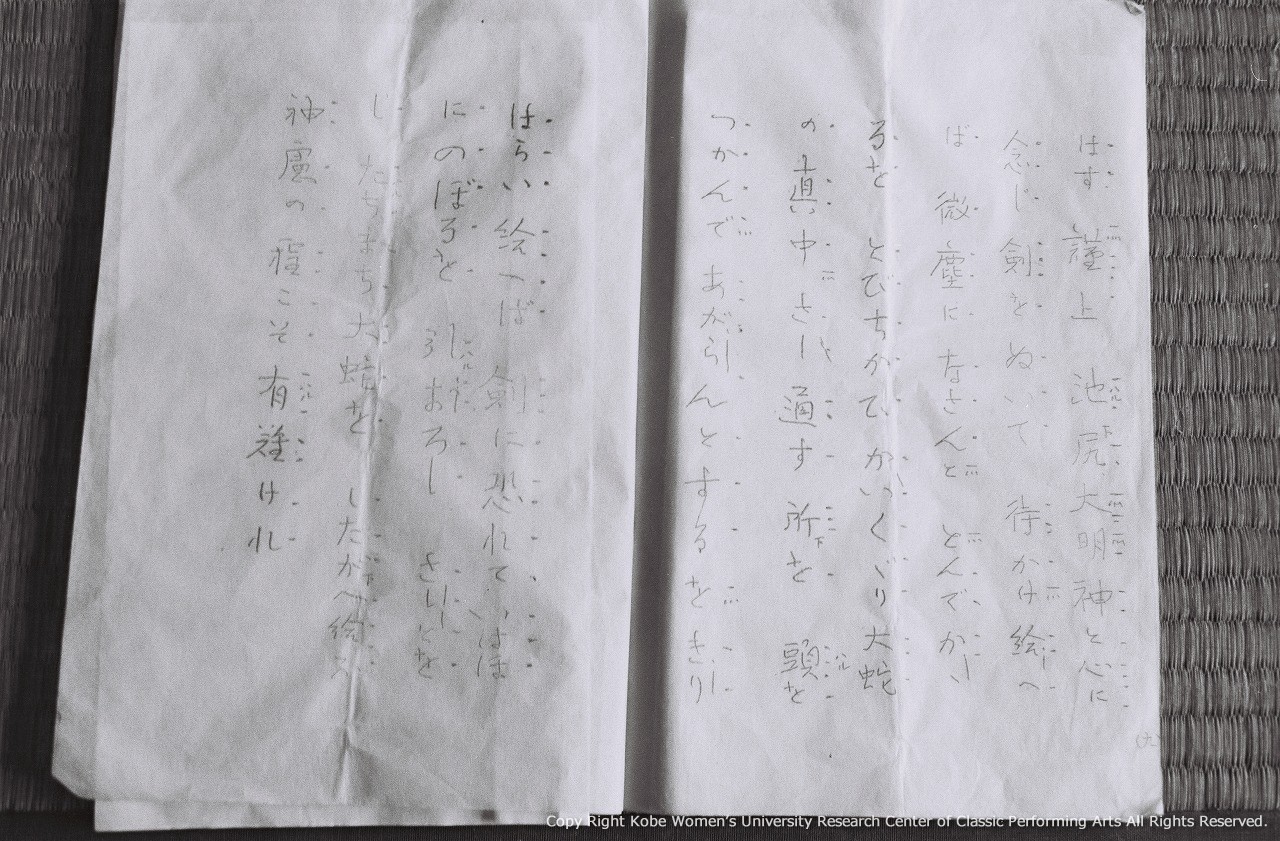 はす 謹上 池尻大明神と心に
念じ 剣をぬいて 待かけ絵へ
ば 微塵になさんと とんでかゝ
るを とびちがてかいくゞり大蛇
の真中さし通す 所を 頭を
つかんであがらんとするをきり
はらい絵へば 剣に恐れていはほ
にのぼるを 引おろし きりしを
じ たちまち大蛇を したがへ絵ふ
神慮の程こそ有難けれ
(九)
Copy Right Kobe Women's University Research Center of Classic Performing Arts All Rights Reserved.